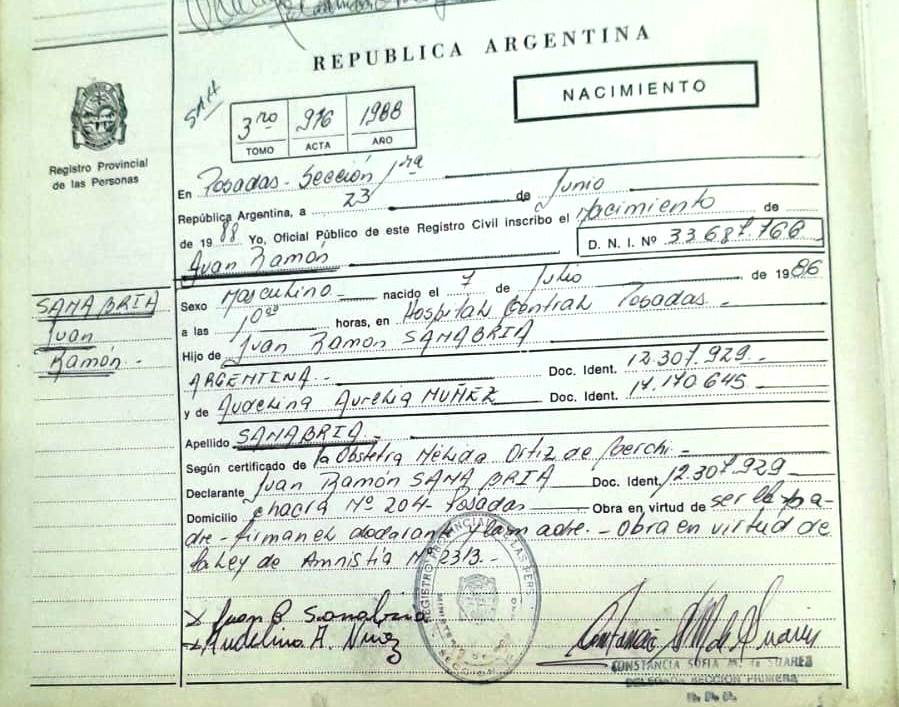 REPUBLICA ARGENTINA
NACIMIENTO
SAA
3ro 976 1988
TOMO ACTA AÑO
Registro Provincial
de las Personas
En Posadas - Sección 1ra
República Argentina, a 23 de Junio
de 1988 Yo, Oficial Público de este Registro Civil inscribo el Nacimiento de
Juan Ramón
D. N. I. Nº 33 687.766
SANABRIA
Juan
Ramón.-
Sexo Masculino nacido el 7 de Julio de 1986
a las 10 horas, en Hospital Central Posadas.-
Hijo de Juan Ramón SANABRIA
ARGENTINA.- Doc. Ident. 12.307.929.-
y de Audelina Aurelia MUÑEZ Doc. Ident. 14.170.645
Apellido SANABRIA.-
Según certificado de la Obstetra Nélida Ortiz de
Declarante Juan Ramón SANABRIA Doc. Ident. 12.307.929
Domicilio chacra Nº 204- Posadas Obra en virtud de ser el pa-
dre - firman el y la madre.- Obra en virtud de
la Ley de Amnistía Nº 2313.-
x Juan Sanabria
x Audelina A. Nuñez
REGISTRO PROVINCIAL DE LAS PERS
CONSTANCIA SOFIA M. de SUAREZ
DELEGADA SECCION PRIMERA